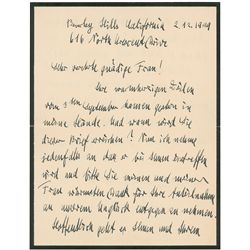 Beverley Hills California 2.12.1949
616 North Crescent Drive
Sehr verehrte gnädige Frau!
Ihre warmherzigen Zeilen
vom September kamen gestern in
meine Hände. Und wann wird Sie
dieser Brief erreichen? Nun ich nehme
jedenfalls an dass er bei Ihnen eintreffen
wird und bitte Sie meinen und meiner
Frau wärmsten Dank für Ihre Anteilnahme
an unserem Unglück entgegen zu nehmen.
Hoffentlich geht es Ihnen und Ihrem